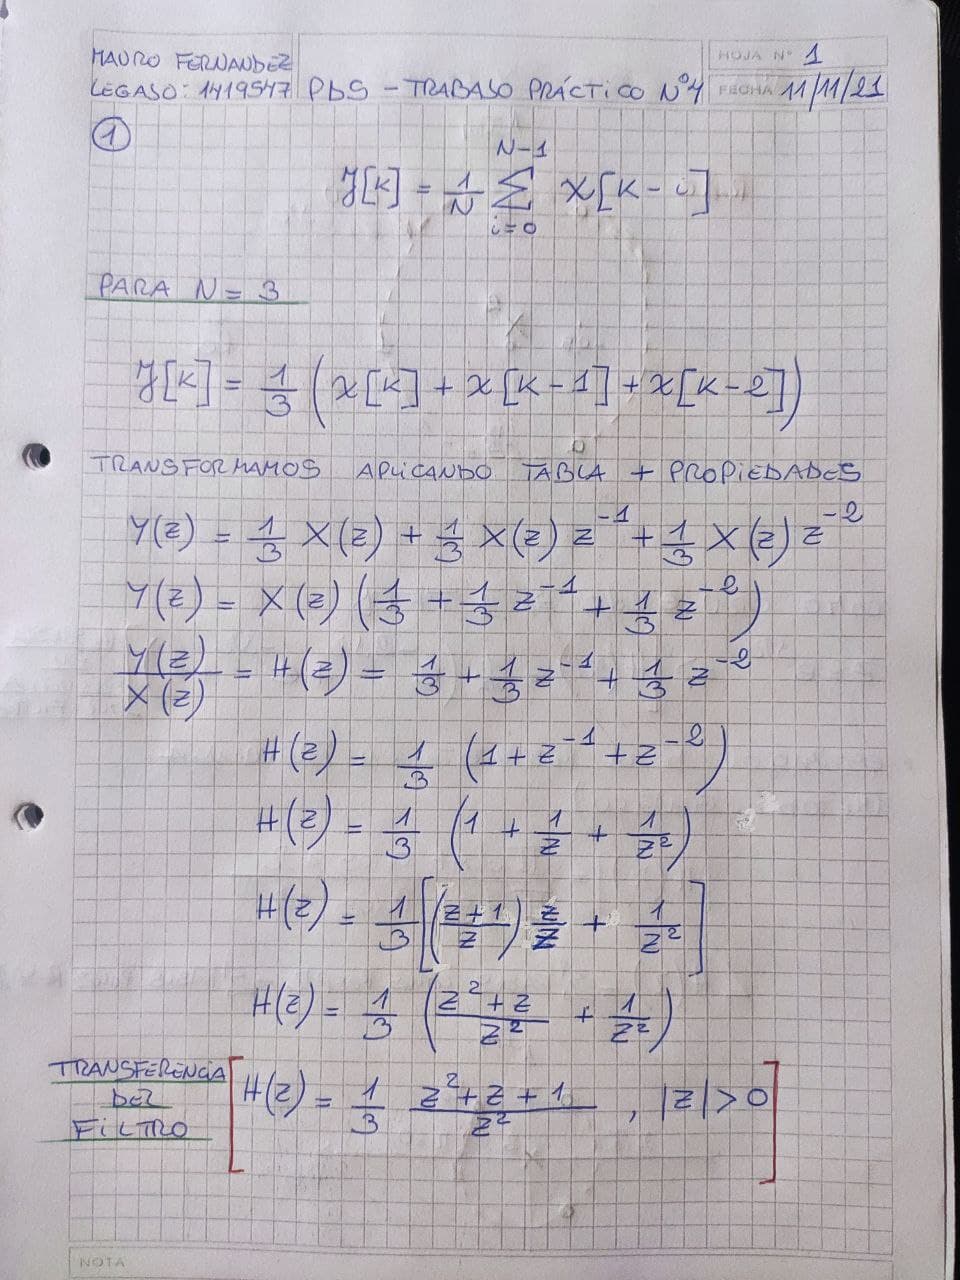 MAURO FERNANDEZ
LEGAJO: 1419547
PDS - TRABAJO PRÁCTICO Nº4
HOJA Nº 1
FECHA 11/11/21
1
y[k] = 1/N ∑_{i=0}^{N-1} x[k-i]
PARA N = 3
y[k] = 1/3 (x[k] + x[k-1] + x[k-2])
TRANSFORMAMOS APLICANDO TABLA + PROPIEDADES
Y(z) = 1/3 X(z) + 1/3 X(z) z^{-1} + 1/3 X(z) z^{-2}
Y(z) = X(z) (1/3 + 1/3 z^{-1} + 1/3 z^{-2})
Y(z)/X(z) = H(z) = 1/3 + 1/3 z^{-1} + 1/3 z^{-2}
H(z) = 1/3 (1 + z^{-1} + z^{-2})
H(z) = 1/3 (1 + 1/z + 1/z²)
H(z) = 1/3 [((z+1)/z) z/z + 1/z²]
H(z) = 1/3 ((z²+z)/z² + 1/z²)
TRANSFERENCIA
DEL
FILTRO
[H(z) = 1/3 (z²+z+1)/z² , |z| > 0]
NOTA